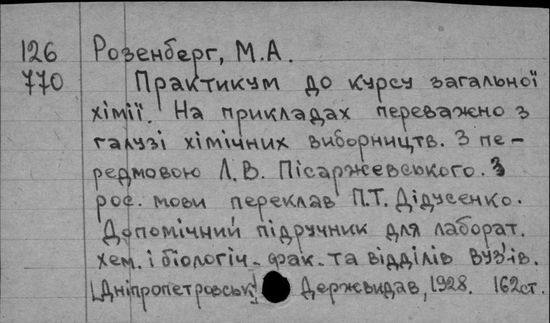 126 Розенберг, М.А.
770 Практикум до курсу загальної
хімії. На прикладах переважно з
галузі хімічних виборництв. З пе-
редмовою Л.В. Пісаржевського. З
рос. мови переклав П.Т. Дідусенко.
Допомічний підручник для лаборат.
хем. і біологіч. фак. та відділів вуз'ів.
[Дніпропетровськ] Держвидав, 1928. 162ст.